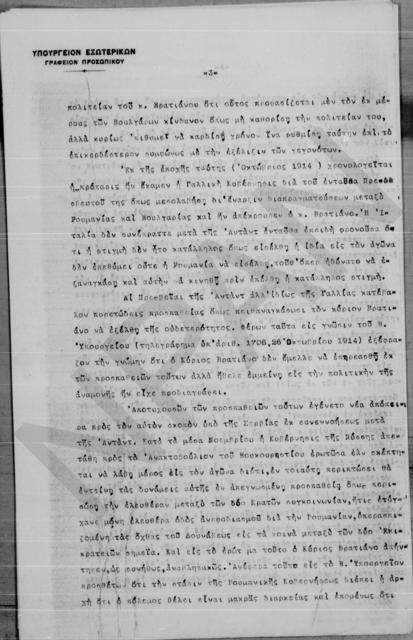 ΥΠΟΥΡΓΕΙΟΝ ΕΞΩΤΕΡΙΚΩΝ
ΓΡΑΦΕΙΟΝ ΠΡΟΣΩΠΙΚΟΥ
-3-
πολιτείαν τοῦ κ. Βρατιάνου ὅτι οὗτος προφασίζεται μὲν τὸν ἐκ μέ-
ρους τῶν Βουλγάρων κίνδυνον ὅπως μὴ καθορίσῃ τὴν πολιτείαν του,
ἀλλὰ κυρίως ἐπιθυμεῖ νὰ κερδίσῃ χρόνον ἵνα ρυθμίσῃ ταύτην ἐπὶ τὸ
ἐπικερδέστερον συμφώνως μὲ τὴν ἐξέλιξιν τῶν γεγονότων.
Ἐκ τῆς ἐποχῆς ταύτης (Ὀκτώβριος 1914) χρονολογεῖται
ἡ πρότασις ἣν ἔκαμεν ἡ Γαλλικὴ Κυβέρνησις διὰ τοῦ ἐνταῦθα Πρεσβ
ρευτοῦ της ὅπως μεσολαβήσῃ δι' ἔναρξιν διαπραγματεύσεων μεταξὺ
Ρουμανίας καὶ Βουλγαρίας καὶ ἣν ἀπέκρουσεν ὁ κ. Βρατιάνο. Ἡ Ἰ-
ταλία δὲν συνέπραττε μετὰ τῆς Ἀντὰντ ἐνταῦθα ἐπειδὴ φρονοῦσα ὅ-
τι ἡ στιγμὴ δὲν ἦτο κατάλληλος ὅπως εἰσέλθῃ ἡ ἰδία εἰς τὸν ἀγῶνα
δὲν ἐπεθύμει οὔτε ἡ Ρουμανία νὰ εἰσέλθῃ, τοῦθ' ὅπερ ἠδύνατο νὰ ἐ-
ξαναγκάσῃ καὶ αὐτὴν νὰ κινηθῇ πρὶν ἐπέλθῃ ἡ κατάλληλος στιγμή.
Αἱ Πρεσβεῖαι τῆς Ἀντὰντ ἀλλ' ἰδίως τῆς Γαλλίας κατέβα-
λον προσπαθείας ὅπως
άνο νὰ ἐξέλθῃ τῆς οὐδετερότητος. Φέρων ταῦτα εἰς γνῶσιν τοῦ Β.
Ὑπουργείου (τηλεγράφημα ὑπ' ἀριθ. 1706, 26 Ὀκτωβρίου 1914) ἐξέφρα-
ζον τὴν γνώμην ὅτι ὁ Κύριος Βρατιάνο δὲν ἔμελλε νὰ ἐπηρεασθῇ ἐκ
τῶν προσπαθειῶν τούτων ἀλλὰ ἤθελε ἐμμείνῃ εἰς τὴν πολιτικὴν τῆς
ἀναμονῆς ἣν εἶχε προδιαγράψει.
Ἀποτυχουσῶν τῶν προσπαθειῶν τούτων ἐγένετο νέα ἀπόπει-
ρα πρὸς τὸν αὐτὸν σκοπὸν ὑπὸ τῆς Σερβίας ἐκ συνεννοήσεως μετὰ
τῆς Ἀντάντ. Κατὰ τὰ μέσα Νοεμβρίου ἡ Κυβέρνησις τῆς Νύσσης ἀπε-
τάθη πρὸς τὸ Ἀνακτοβούλιον τοῦ Βουκουρεστίου ἐρωτῶσα ἐὰν σκέπτη-
ται νὰ λάβῃ μέρος εἰς τὸν ἀγῶνα διότι, ἐν τοιαύτῃ περιπτώσει θὰ
ἐντείνῃ τὰς δυνάμεις αὐτῆς ἐν ἀπεγνωσμένῃ προσπαθείᾳ ὅπως περι-
σώσῃ τὴν ἐλευθέραν μεταξὺ τῶν δύο Κρατῶν συγκοινωνίαν, ἥτις ἐτύγ-
χανε μόνη ἐλευθέρα ὁδὸς ἀνεφοδιασμοῦ διὰ τὴν Ρουμανίαν,
ζομένη τὰς ὄχθας τοῦ Δουνάβεως εἰς τὰ κοινὰ μεταξὺ τῶν δύο Ἐπι-
κρατειῶν σημεῖα. Καὶ εἰς τὸ ἐρώτημα τοῦτο ὁ Κύριος Βρατιάνο ἀπήν-
τησεν, ὡς συνήθως, ἀναβλητικῶς. Ἀνέφερα τοῦτο εἰς τὸ Β. Ὑπουργεῖον
προσθέτων ὅτι τὴν στάσιν τῆς Ρουμανικῆς Κυβερνήσεως διέπει ἡ ἀρ-
χὴ ὅτι ὁ πόλεμος θέλει εἶναι μακρᾶς διαρκείας καὶ ἑπομένως ὅτι